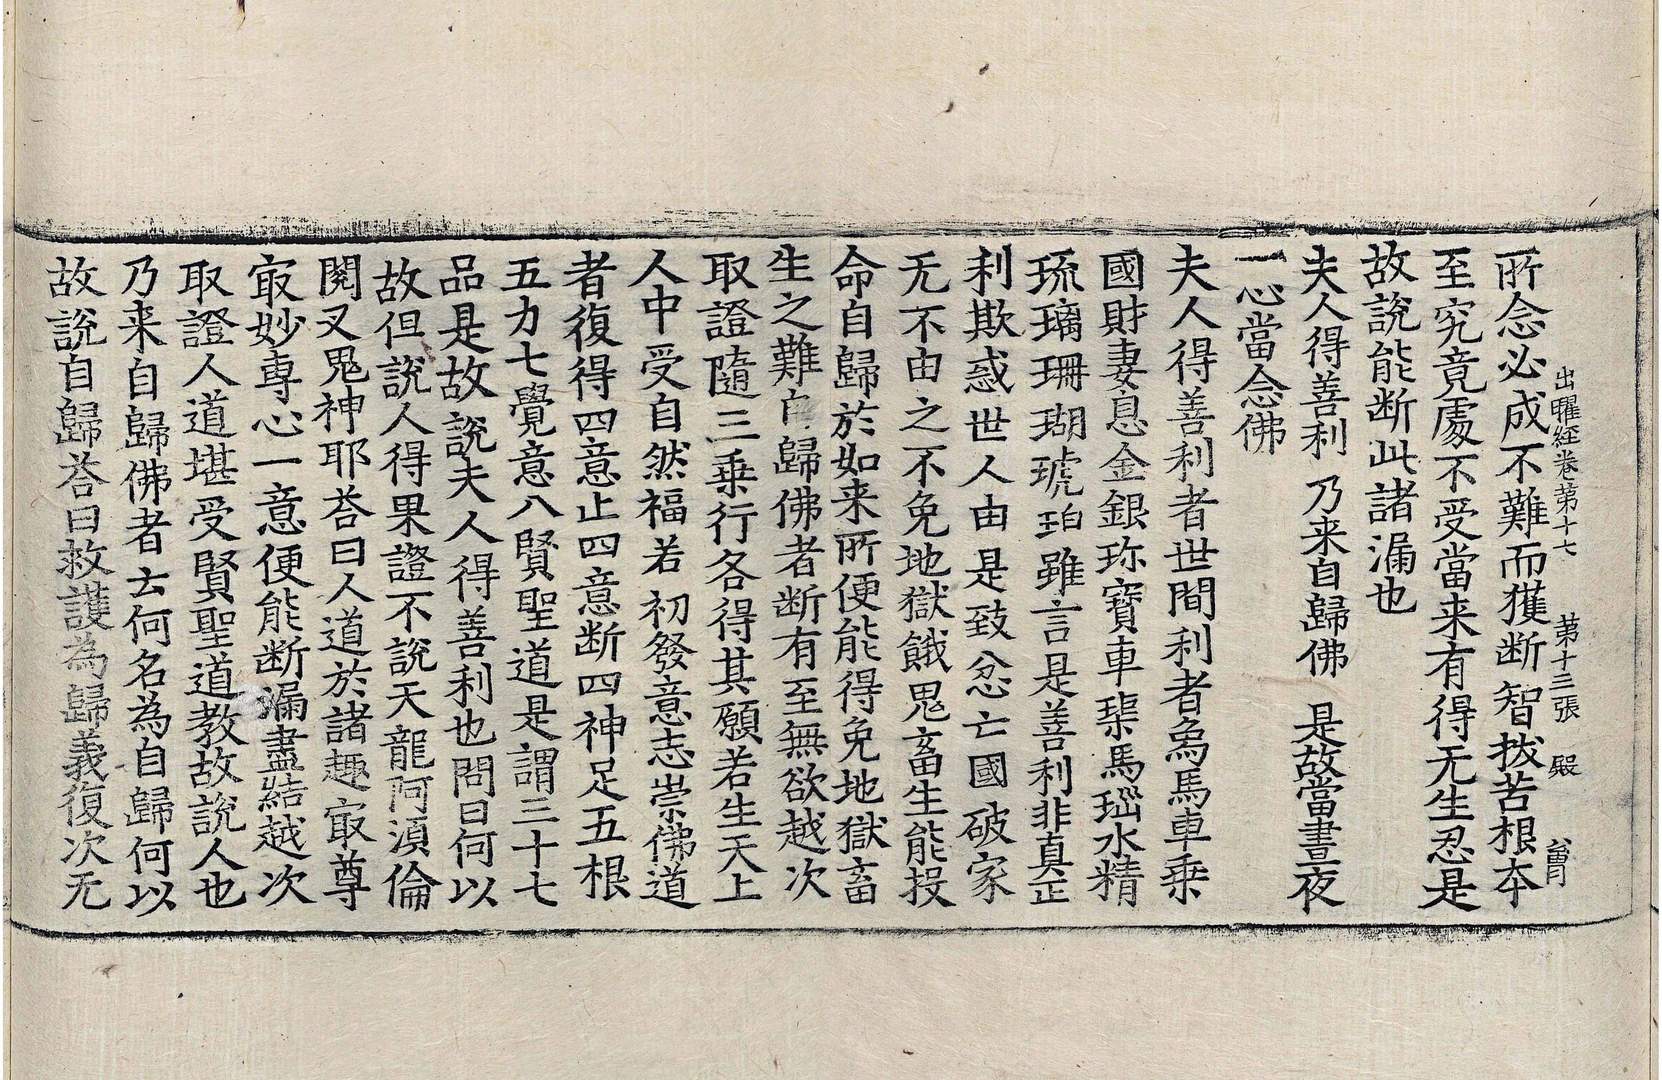 出曜經卷第十七 第十三張 殿
所念必成不難而獲断智拔苦根夲
至究竟處不受當来有得无生忍是
故說能断此諸漏也
夫人得善利 乃来自歸佛 是故當晝夜
一心當念佛
夫人得善利者世間利者象馬車乗
國財妻息金銀珎寳車𤦲馬瑙水精
琉璃珊瑚琥珀雖言是善利非真正
利欺惑世人由是致忿亡國破家
无不由之不免地獄餓鬼畜生能投
命自歸於如来所便能得免地獄畜
生之難自歸佛者断有至無欲越次
取證隨三乗行各得其願若生天上
人中受自然福若初發意志崇佛道
者復得四意止四意断四神足五根
五力七覺意八賢聖道是謂三十七
品是故說夫人得善利也問曰何以
故但說人得果證不說天龍阿湏倫
閱叉鬼神耶荅曰人道於諸趣㝡尊
㝡妙專心一意便能断漏盡結越次
取證人道堪受賢聖道教故說人也
乃来自歸佛者去何名為自歸何以
故說自歸荅曰救護為歸義復次无